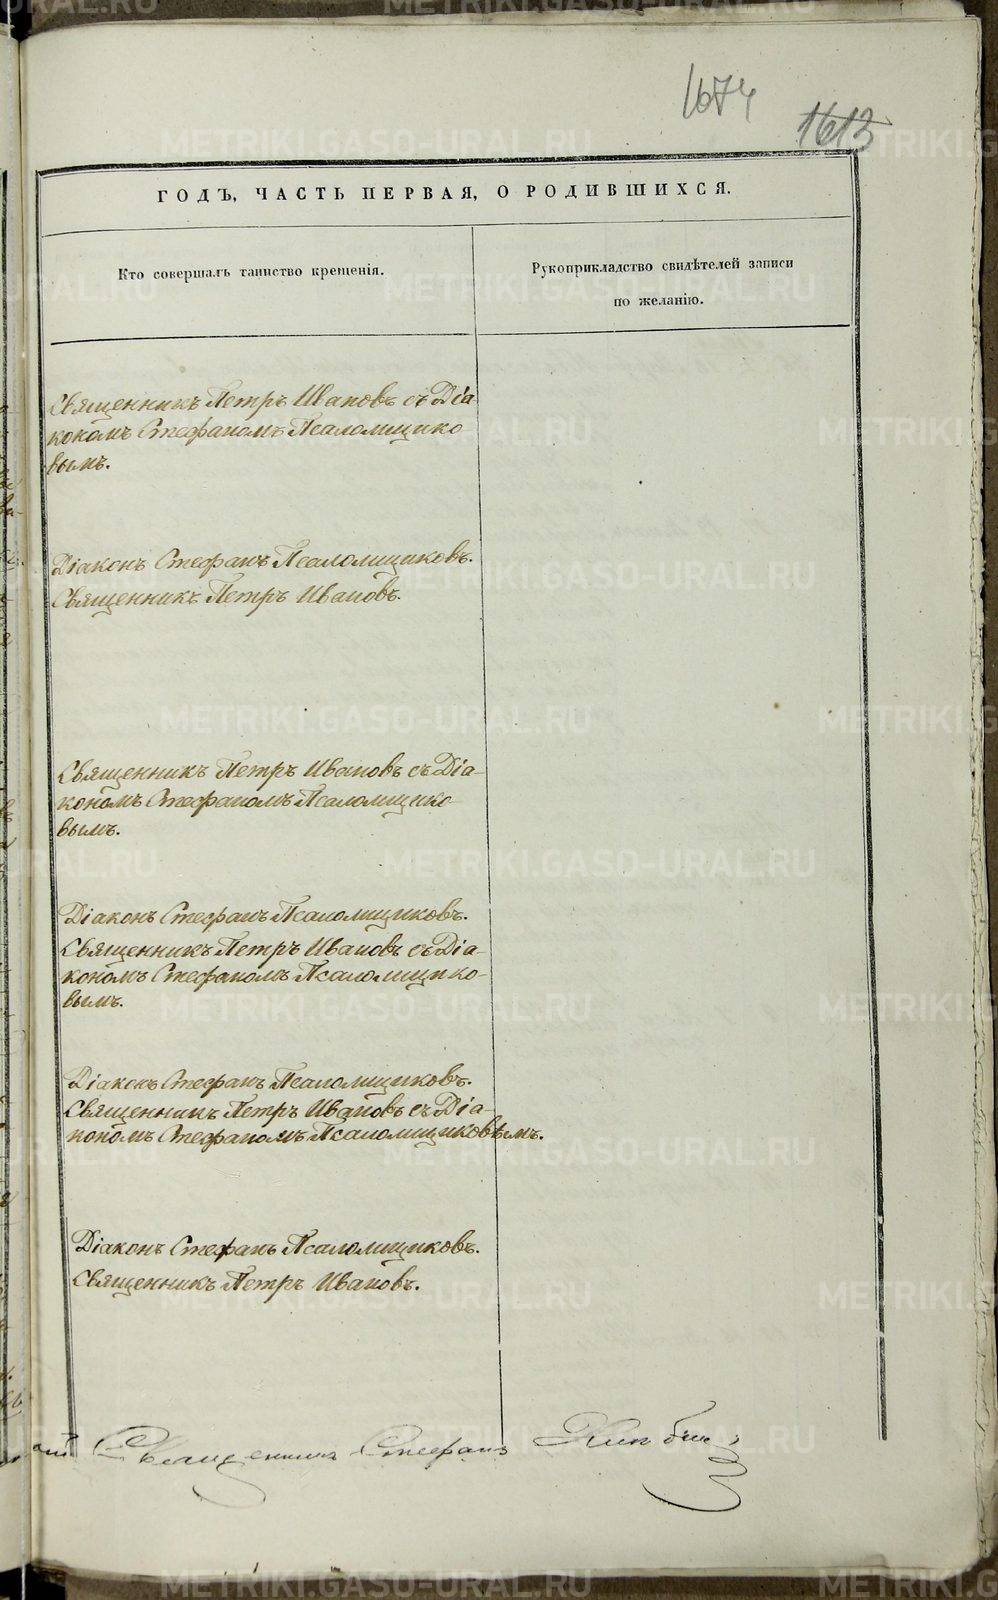 1674
1613
ГОДЪ, ЧАСТЬ ПЕРВАЯ, О РОДИВШИХСЯ.
Кто совершалъ таинство крещенія.
Рукоприкладство свидѣтелей записи
по желанію.
Священникъ Петръ Ивановъ съ Діа
кономъ Стефаномъ Псаломщико
вымъ.
Діаконъ Стефанъ Псаломщиковъ.
Священникъ Петръ Ивановъ.
Священникъ Петръ Ивановъ съ Діа-
кономъ Стефаномъ Псаломщико-
вымъ.
Діаконъ Стефанъ Псаломщиковъ.
Священникъ Петръ Ивановъ съ Діа-
кономъ Стефаномъ Псаломщико-
вымъ.
Діаконъ Стефанъ Псаломщиковъ.
Священникъ Петръ Ивановъ съ Діа-
кономъ Стефаномъ Псаломщиковымъ.
Діаконъ Стефанъ Псаломщиковъ.
Священникъ Петръ Ивановъ.
Священникъ Стефанъ
METRIKI.GASO-URAL.RU